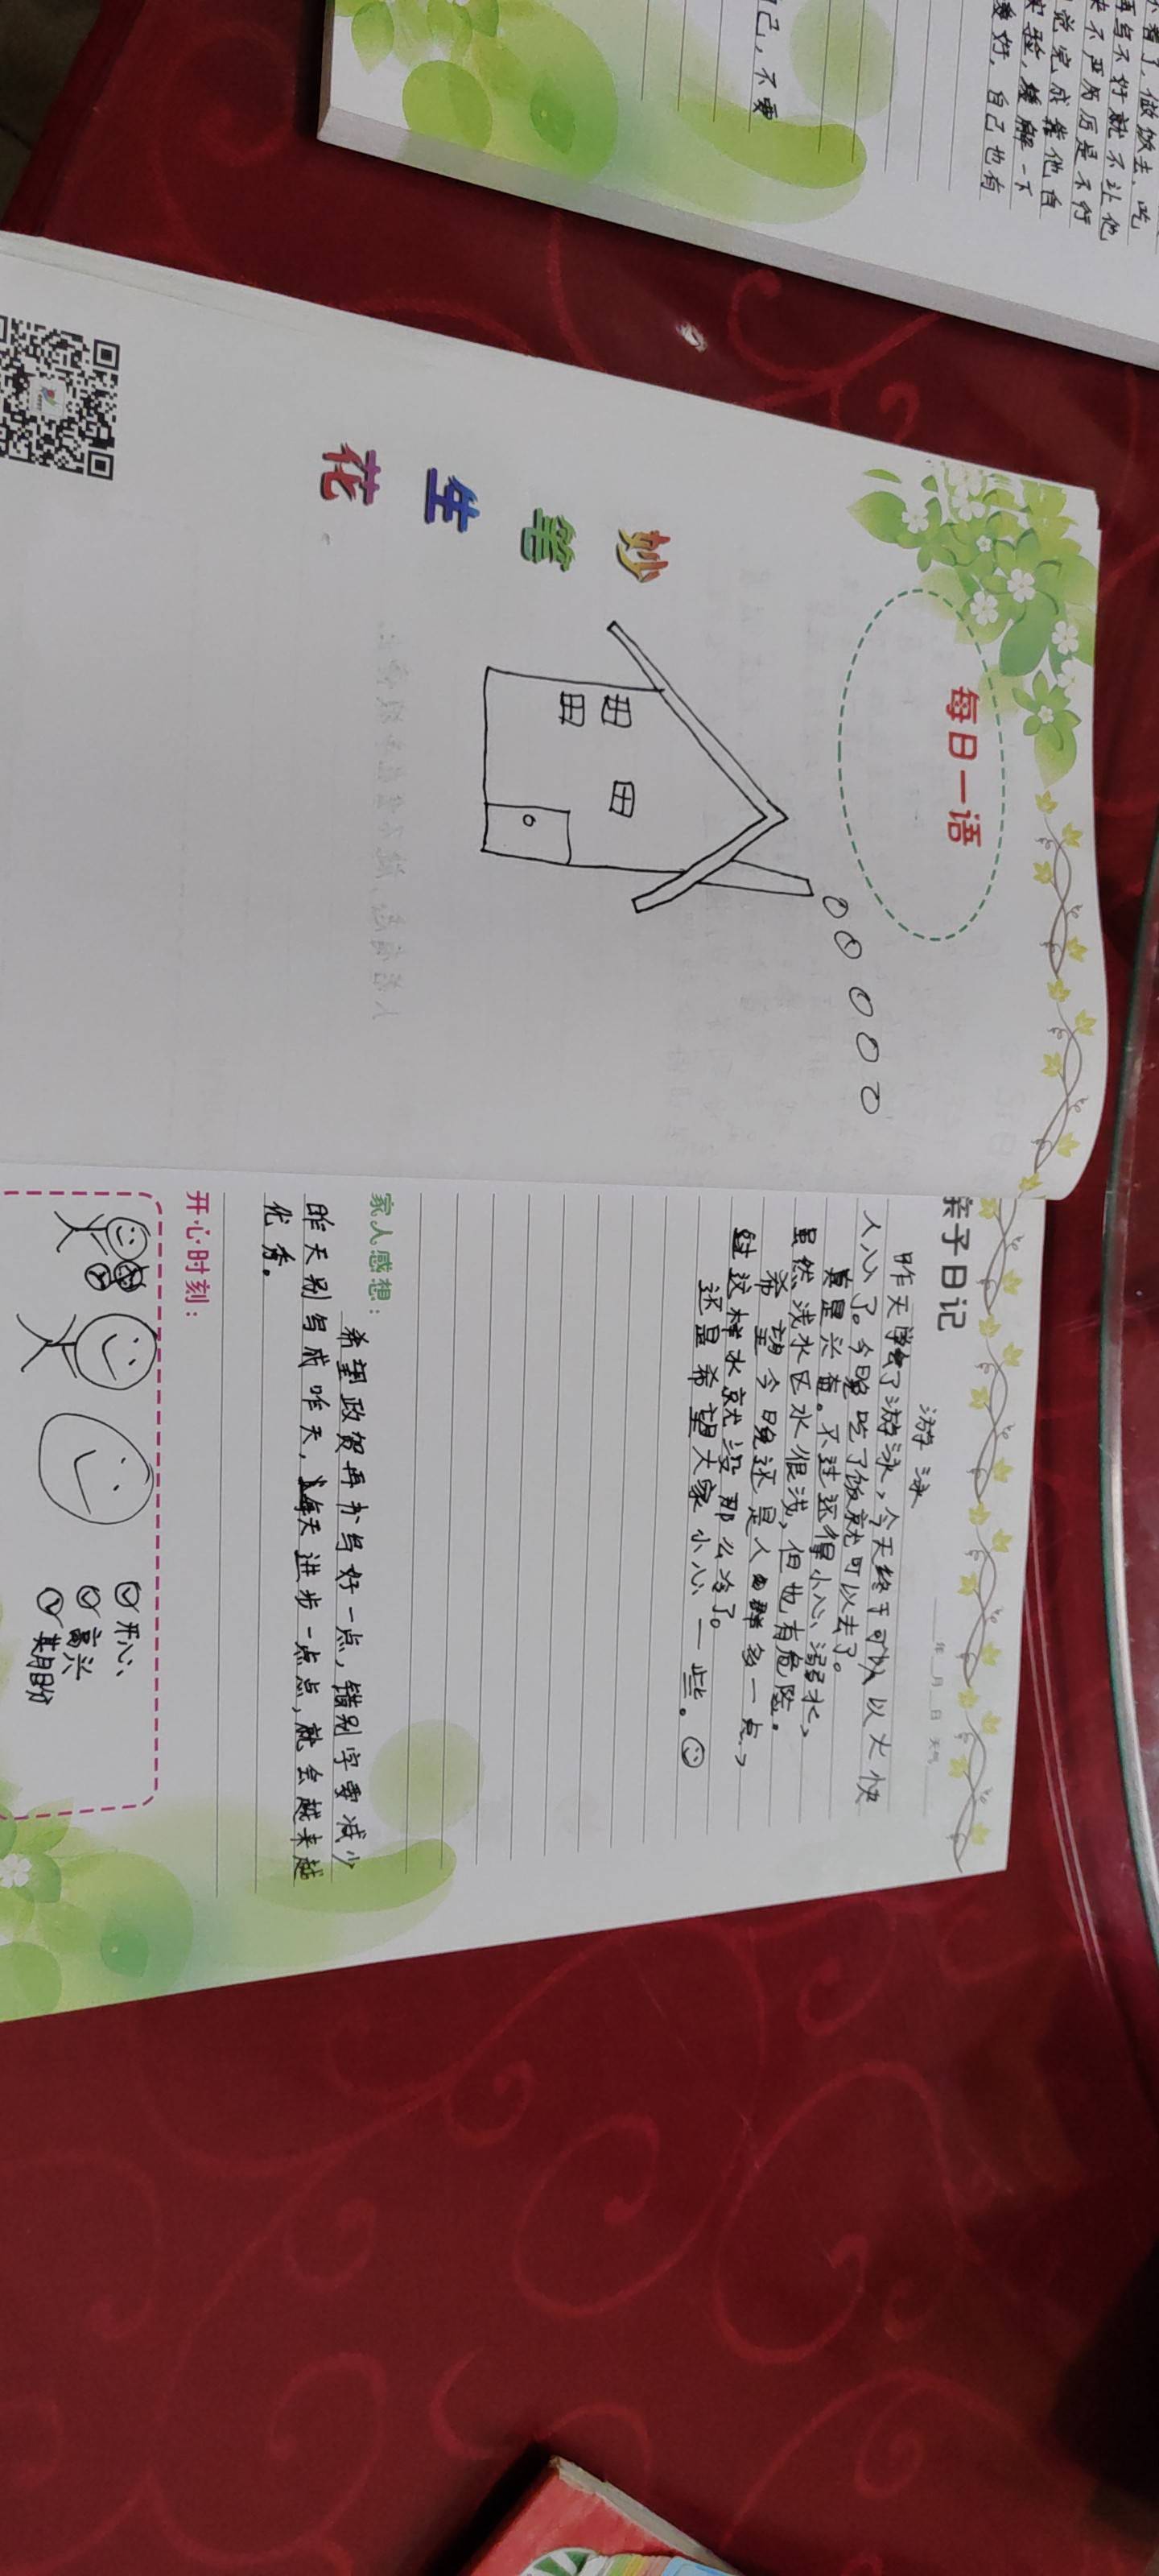 小着了,做饭去、吃
再写不好就不让他
来不严厉厉是不行
觉完成能他自
实验,缓解一下
爱好,自己也有
己,不要
每日一语
妙
笔
生
花
亲子日记
年 月 日 天气
游泳
昨天学会了游泳,今天终于可以以火快
人心了。今晚吃了饭就可以去了。
真是兴奋。不过还得小心溺水,
虽然浅水区水很浅,但也有危险。
希望今晚还是人群多一点,
这样水就没那么冷了。
还是希望大家小心一些。
家人感想:
希望政贺再书写好一点,错别字要减少
昨天别写成昨天,每天进步一点点,就会越来越
优秀。
开心时刻:
开心
高兴
其月日分